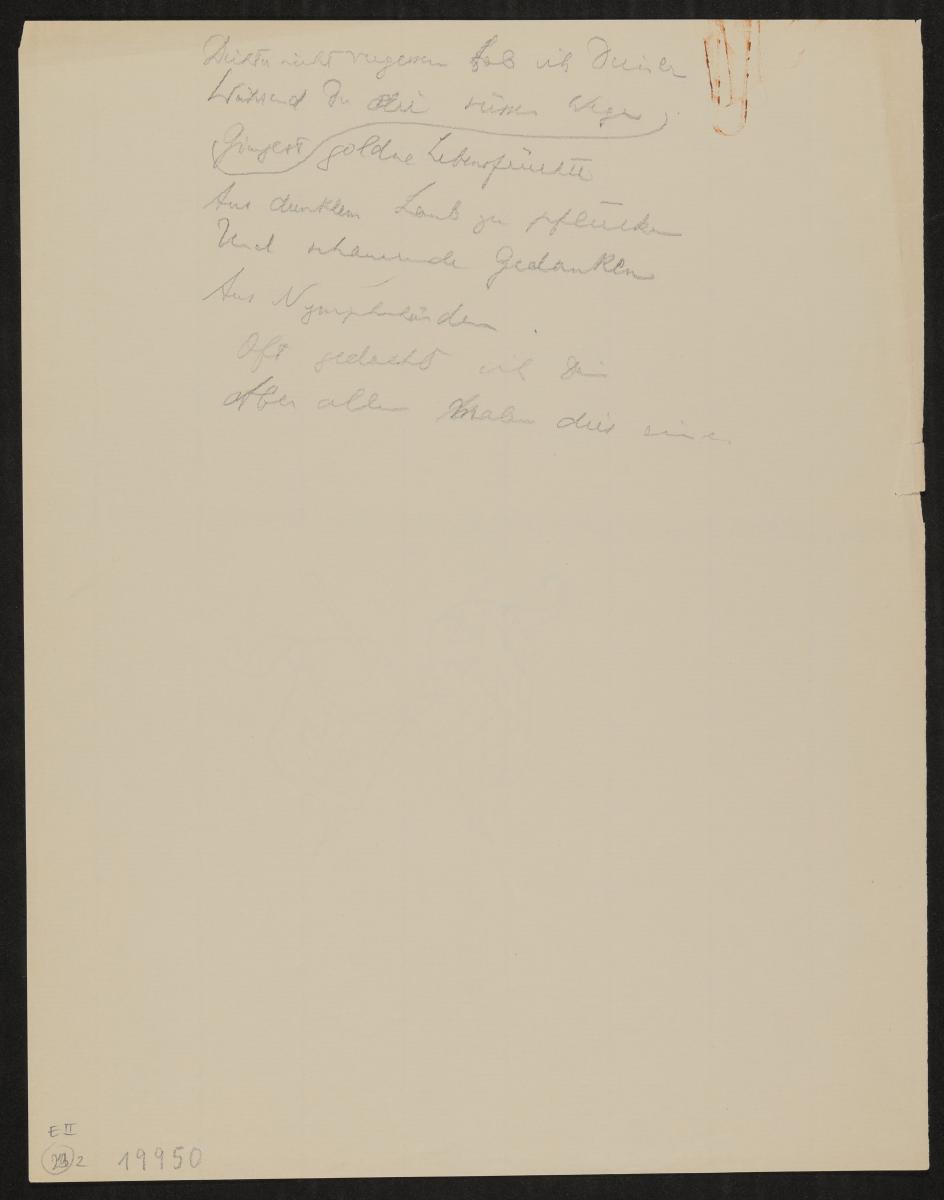 nicht vergessen hab ich Deiner
Während Du die süssen Wege
Gingest goldne Lebensfrüchte
Aus dunklem Laub zu pflücken
Und schauernde Gedanken
Aus Nymphenhänden.
Oft gedacht ich Dein
Aber allem dies eine
E II
2 19950